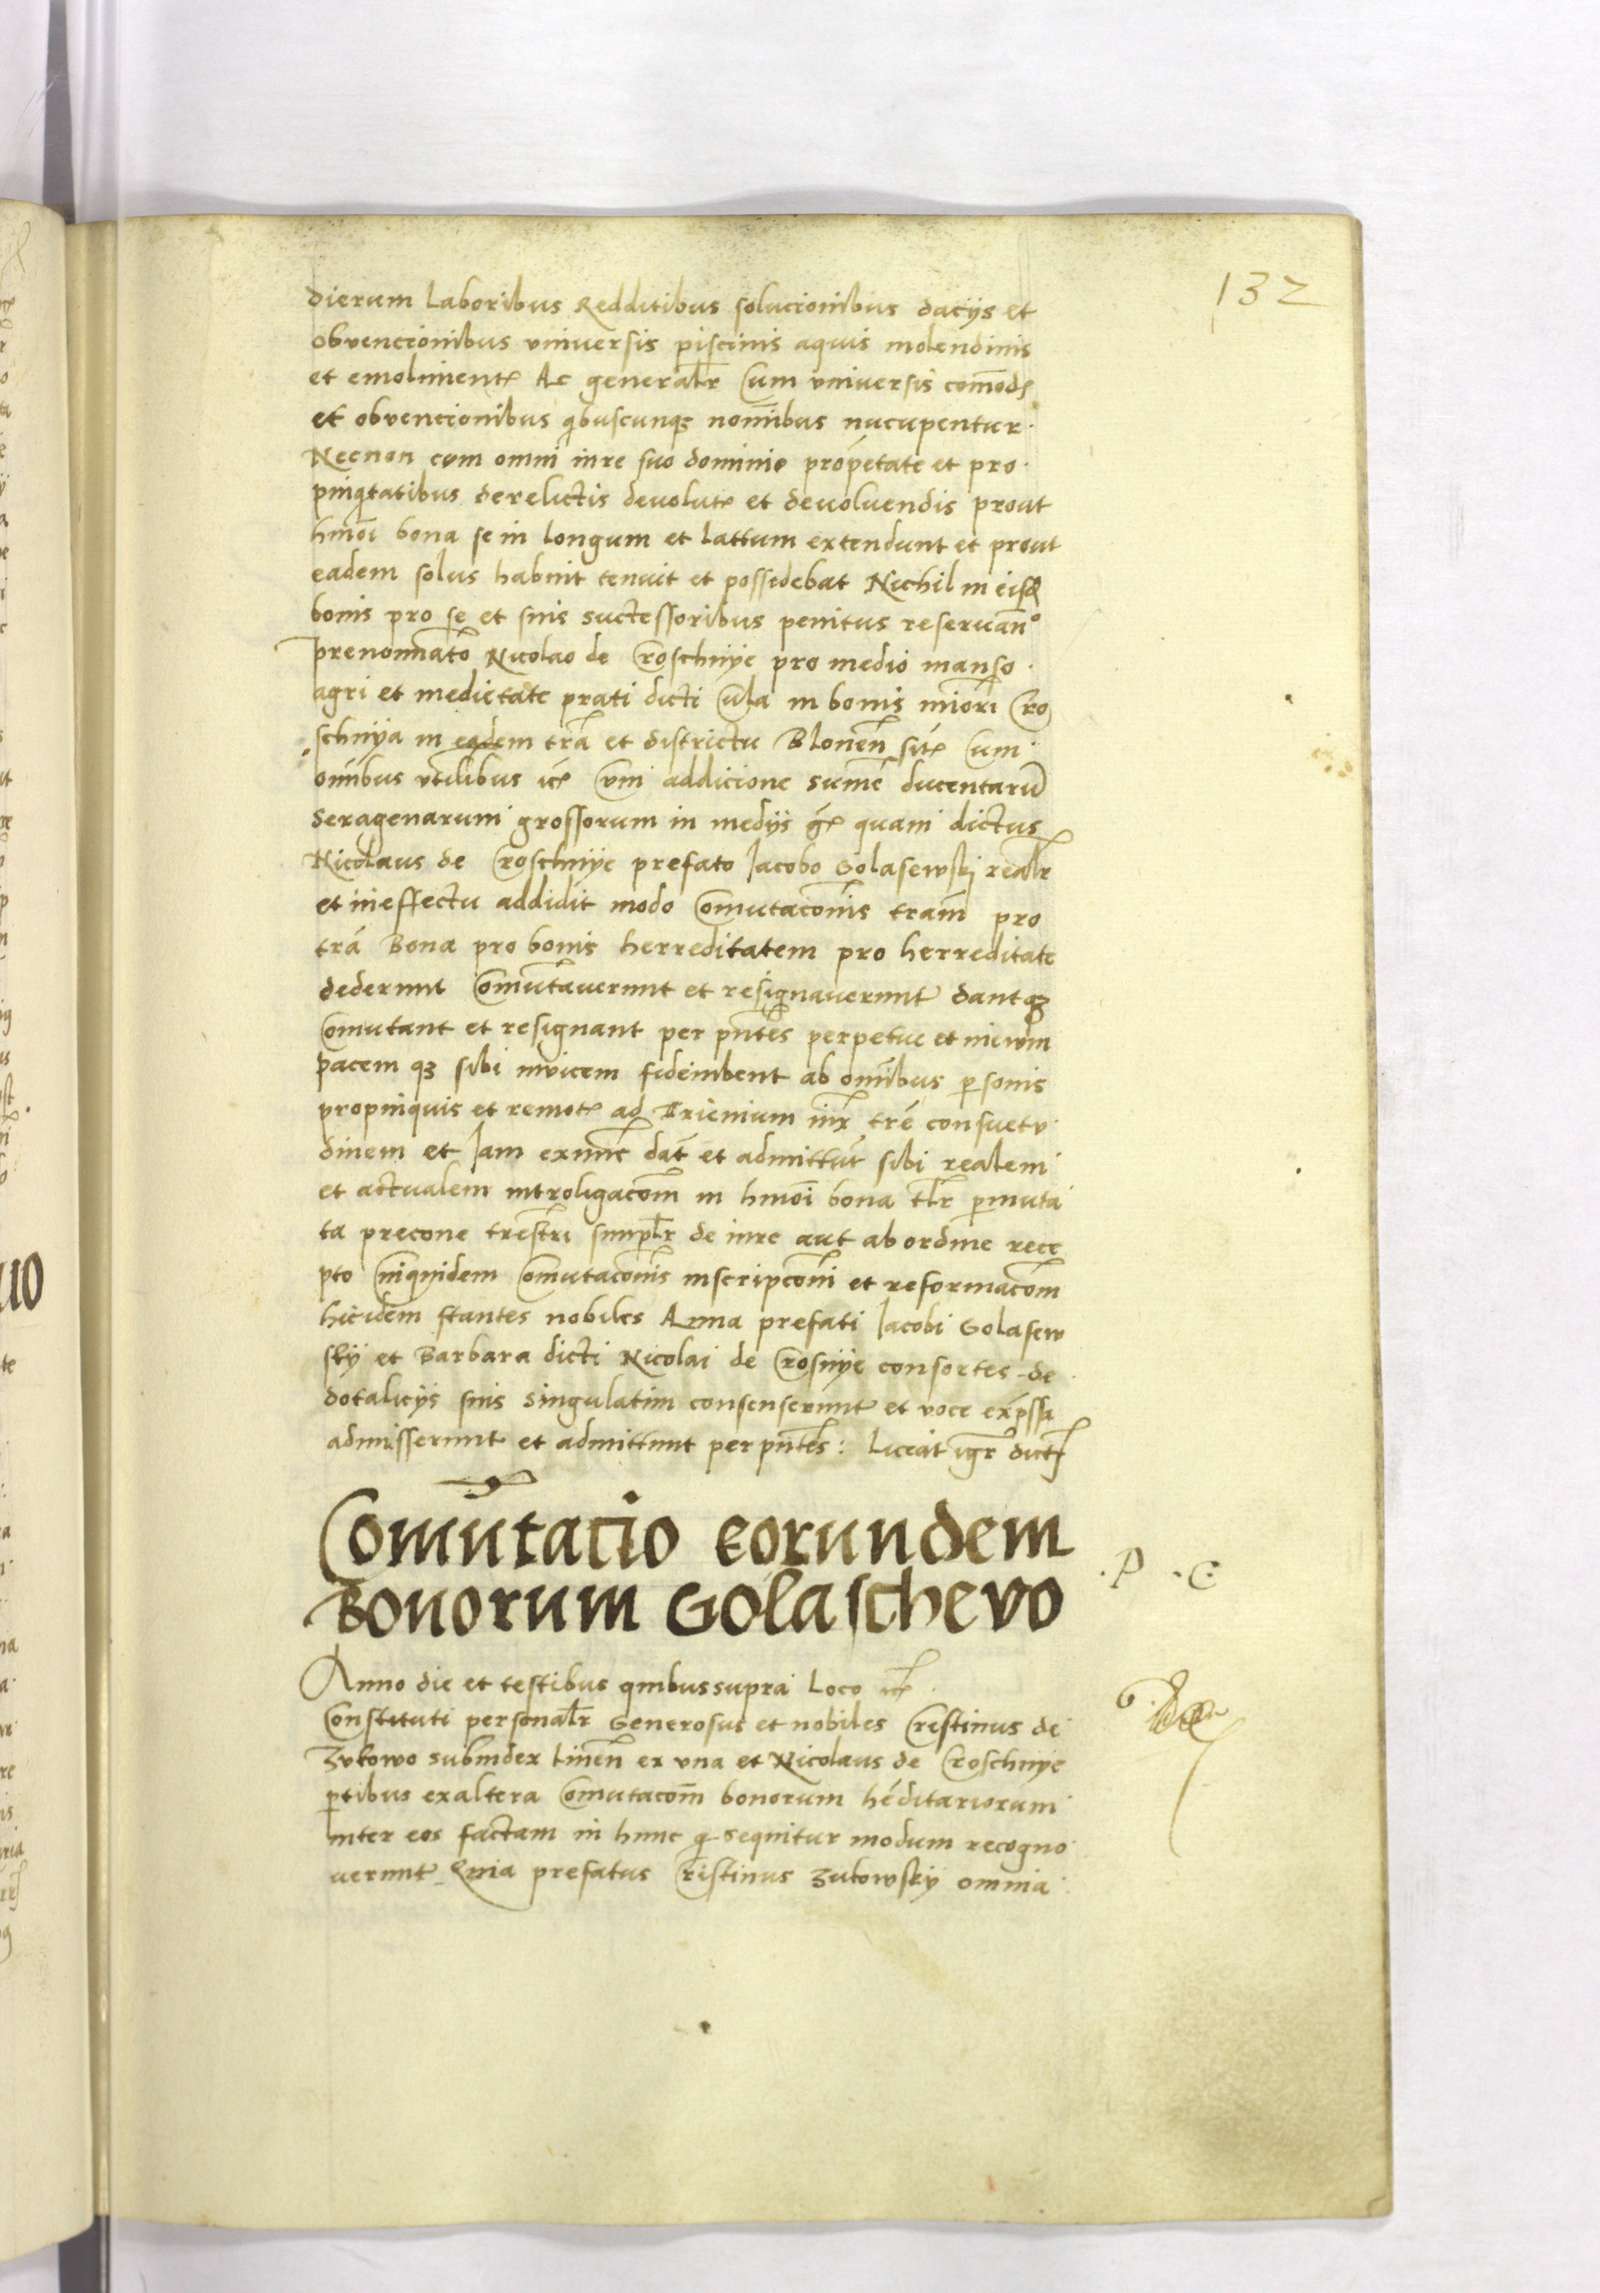 132
dierum Laboribus Redditibus solucionibus dacijs et
obvencionibus vniversis piscinis aquis molendinis
et emoliment Ac generalr Cum vniversis comod
et obvencionibus qibuscunq nomibus nucupentur.
Necnon cum omni iure suo dominio propetate et pro
pinqtatibus derelictis devolut et devoluendis prout
hmoi bona se in Longum et Lattum extendunt et prout
eadem solus habuit tenuit et possidebat Nichil in eisd
bonis pro se et suis successoribus penitus reseruan°
prenominato Nicolao de Croschnije pro medio manso
agri et medietate prati dicti in bonis miori Cro
schnya in eadem tra et districtu Blonen sit Cum
omibus vtilibus ic Cum addicione summe ducentaru
sexagenarum grossorum in medijs g quam dictus
Nicolaus de Croschnije prefato Jacobo Golasewskj realr
et in effectu addidit modo Comutacois tram pro
tra Bona pro bonis herreditatem pro herreditate
dederunt Comutauerunt et resignauerunt dantq
Comutant et resignant per pntes perpetue et in ewm
pacem q sibi invicem fideiubent ab omibus psonis
propinquis et remot ad Trienium iux tre consuetu
dinem et Jam exnunc dat et admittut sibi realem
et actualem introligacom in hmoi bona tlr pmuta
ta precone trestri simplr de iure aut ab ordine rece
pto Cuiquidem Comutacois inscripcom et reformacom
hicidem stantes nobiles Anna prefati Jacobi Golasew
skij et Barbara dicti Nicolai de Crosnije consortes de
dotalicijs suis singulatim consenserunt et voce expssa
admisserunt et admittunt per pntes: Liceat igr dict
Comutacio eorundem
Bonorum Golaschevo
. P . C
Anno die et testibus quibus supra Loco ic
Constituti personalr Generosus et nobiles Cristinus de
Zukowo subiudex Liuen ex vna et Nicolaus de Croschnije
ptibus exaltera Comutacom bonorum heditariorum
inter eos factam in hunc q sequitur modum recogno
uerunt Quia prefatus Cristinus Zukowskij omnia